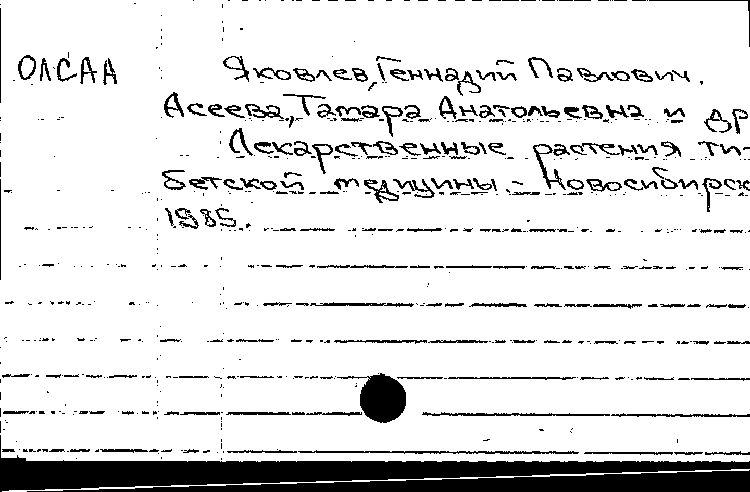 ОЛСАА Яковлев, Геннадий Павлович.
Асеева, Тамара Анатольевна и др
Лекарственные растения ти-
бетской медицины. - Новосибирск
1985.